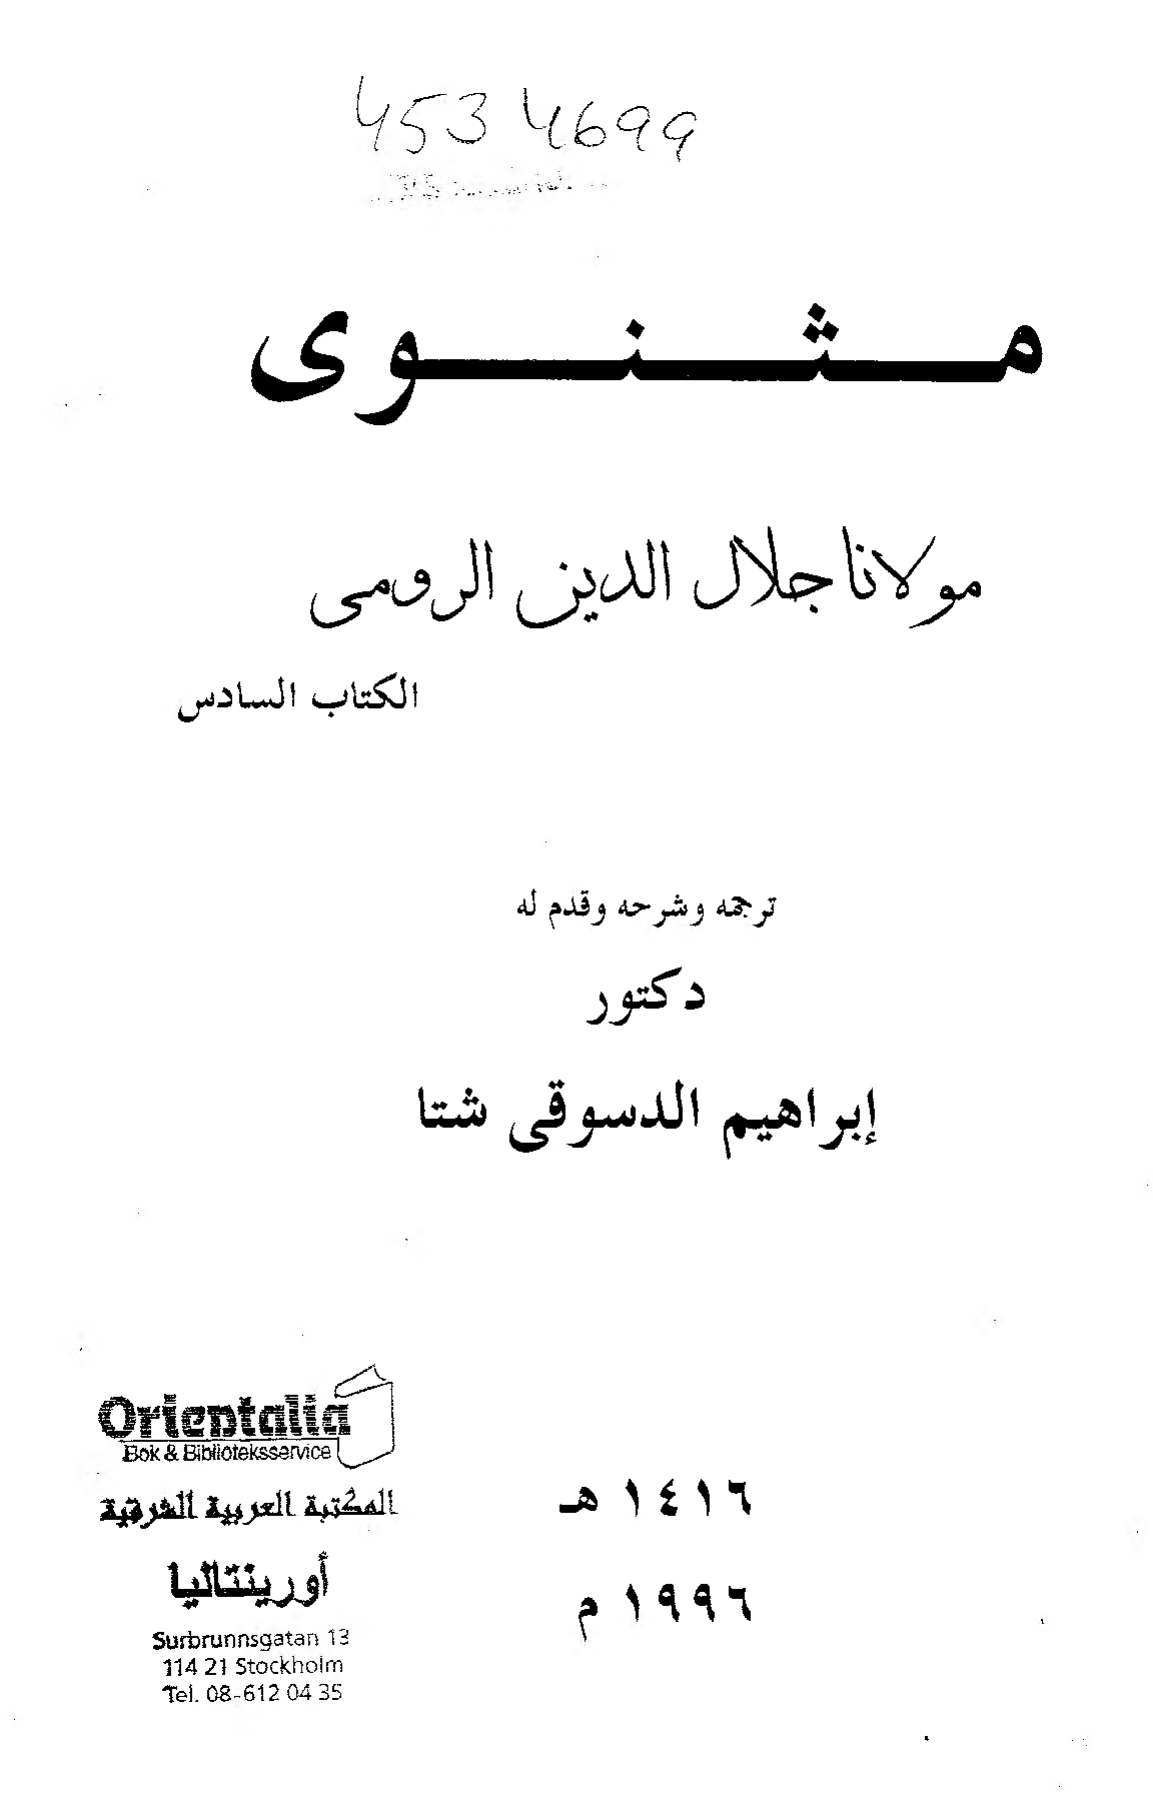 4534699
مثنوى
مولانا جلال الدين الرومى
الكتاب السادس
ترجمه وشرحه وقدم له
دكتور
إبراهيم الدسوقى شتا
١٤١٦ هـ
١٩٩٦ م
Orientalia
Bok & Biblioteksservice
المكتبة العربية الشرقية
أورينتاليا
Surbrunnsgatan 13
114 21 Stockholm
Tel. 08-612 04 35